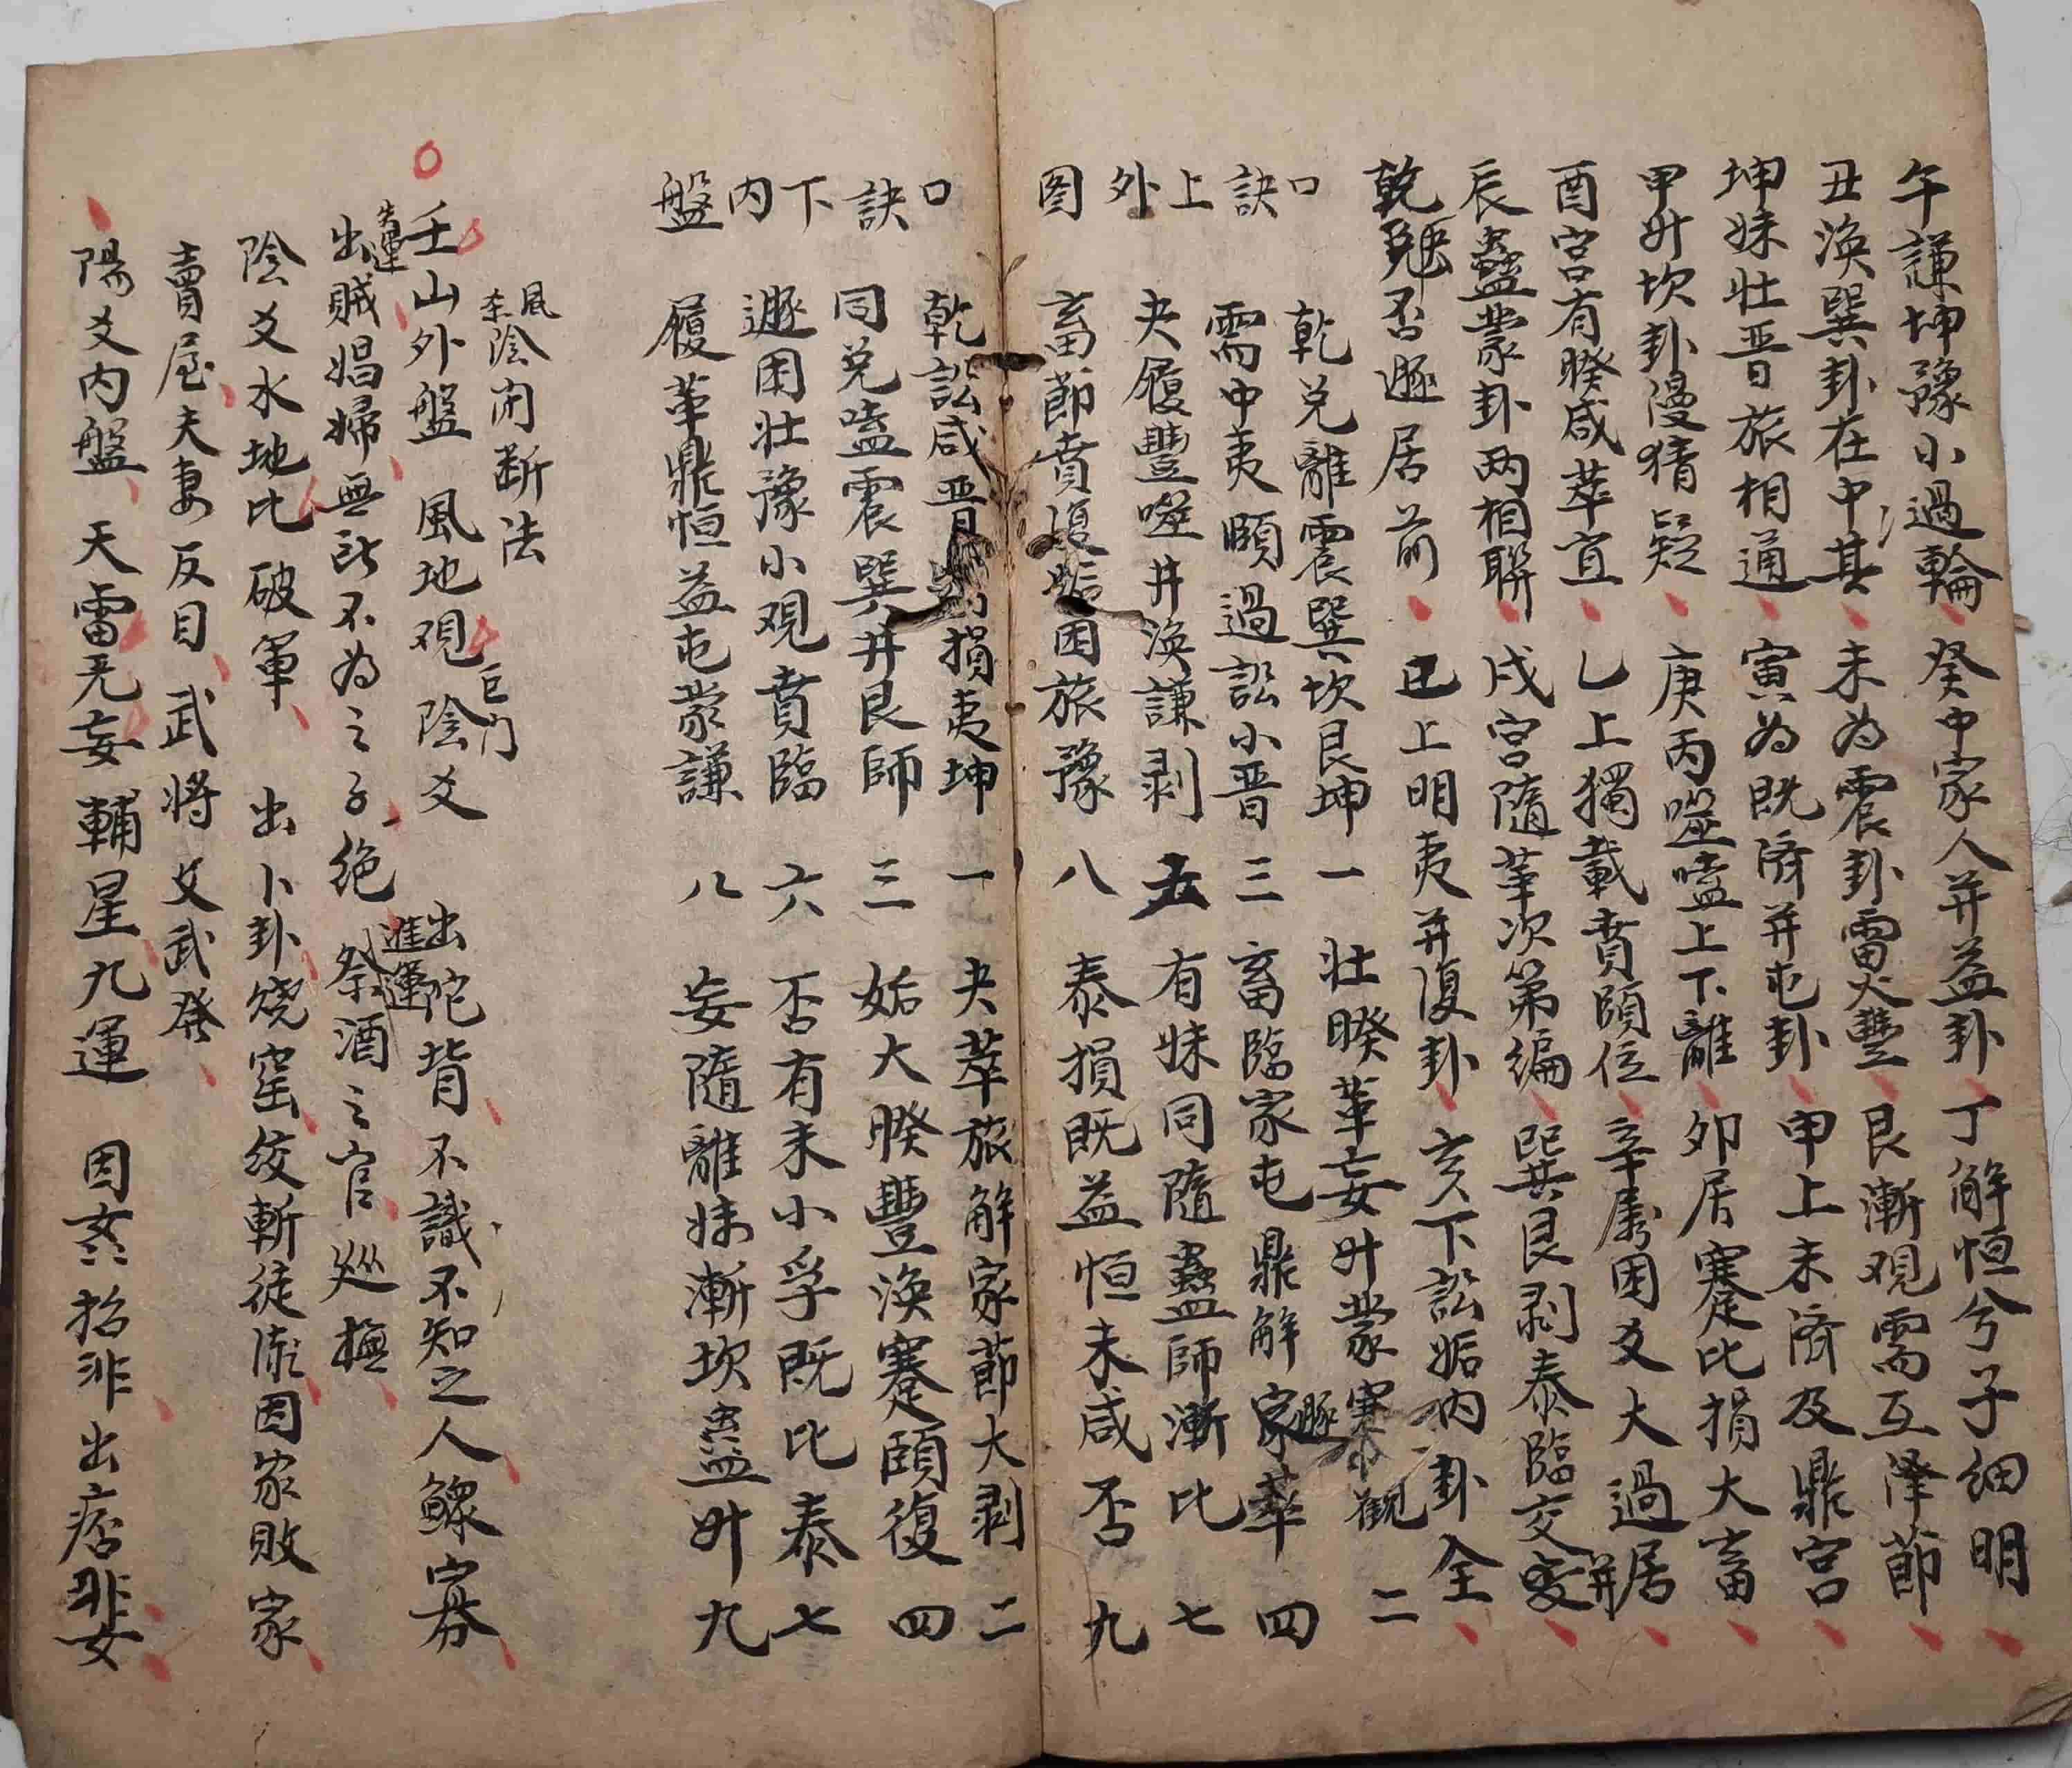 午謙坤豫小過輪 癸中家人并益卦 丁解恒兮子細明
丑渙巽卦在中其 未為震卦雷火豐 艮漸观需互泽節
坤妹壮晋旅相通 寅為既済并屯卦 申上未済及鼎宮
甲升坎卦漫猜疑 庚丙噬嗑上下離 卯居蹇比損大畜
酉宮有睽咸萃宜 乙上獨載賁頤位 辛属困爻大過居
辰蠱蒙卦两相聨 戌宮隨革次第编 巽艮剥泰臨交变 并
乾兑否遯居前 巳上明夷并復卦 亥下訟姤内卦全
口訣上外图
乾兑離震巽坎艮坤 一 壮睽革妄升蒙蹇观 二
需中夷頤過訟小晋 三 畜臨家屯鼎解遯萃 四
夬履豐噬井渙謙剥 五 有妹同隨蠱師漸比 七
畜節賁復姤困旅豫 八 泰損既益恒未咸否 九
口訣下内盤
乾訟咸晋損夷坤 一 夬萃旅解家節大剥 二
同兑嗑震巽井艮師 三 姤大睽豐渙蹇頤復 四
遯困壮豫小观賁臨 六 否有未小孚既比泰 七
履革鼎恒益屯蒙謙 八 妄隨離妹漸坎蠱升 九
風
陰閉断法
壬山外盤 風地观 陰爻 巨门 出陀背 不識不知之人鰥寡
失運 出賊娼婦無耻不為之子絶 進運 祭酒之官廵撫
陰爻水地比 破軍 出卜卦燒窑绞斬徒流因家敗家
賣屋夫妻反目 武将 文武發
陽爻内盤 天雷无妄 輔星九運 因亥招非出痞